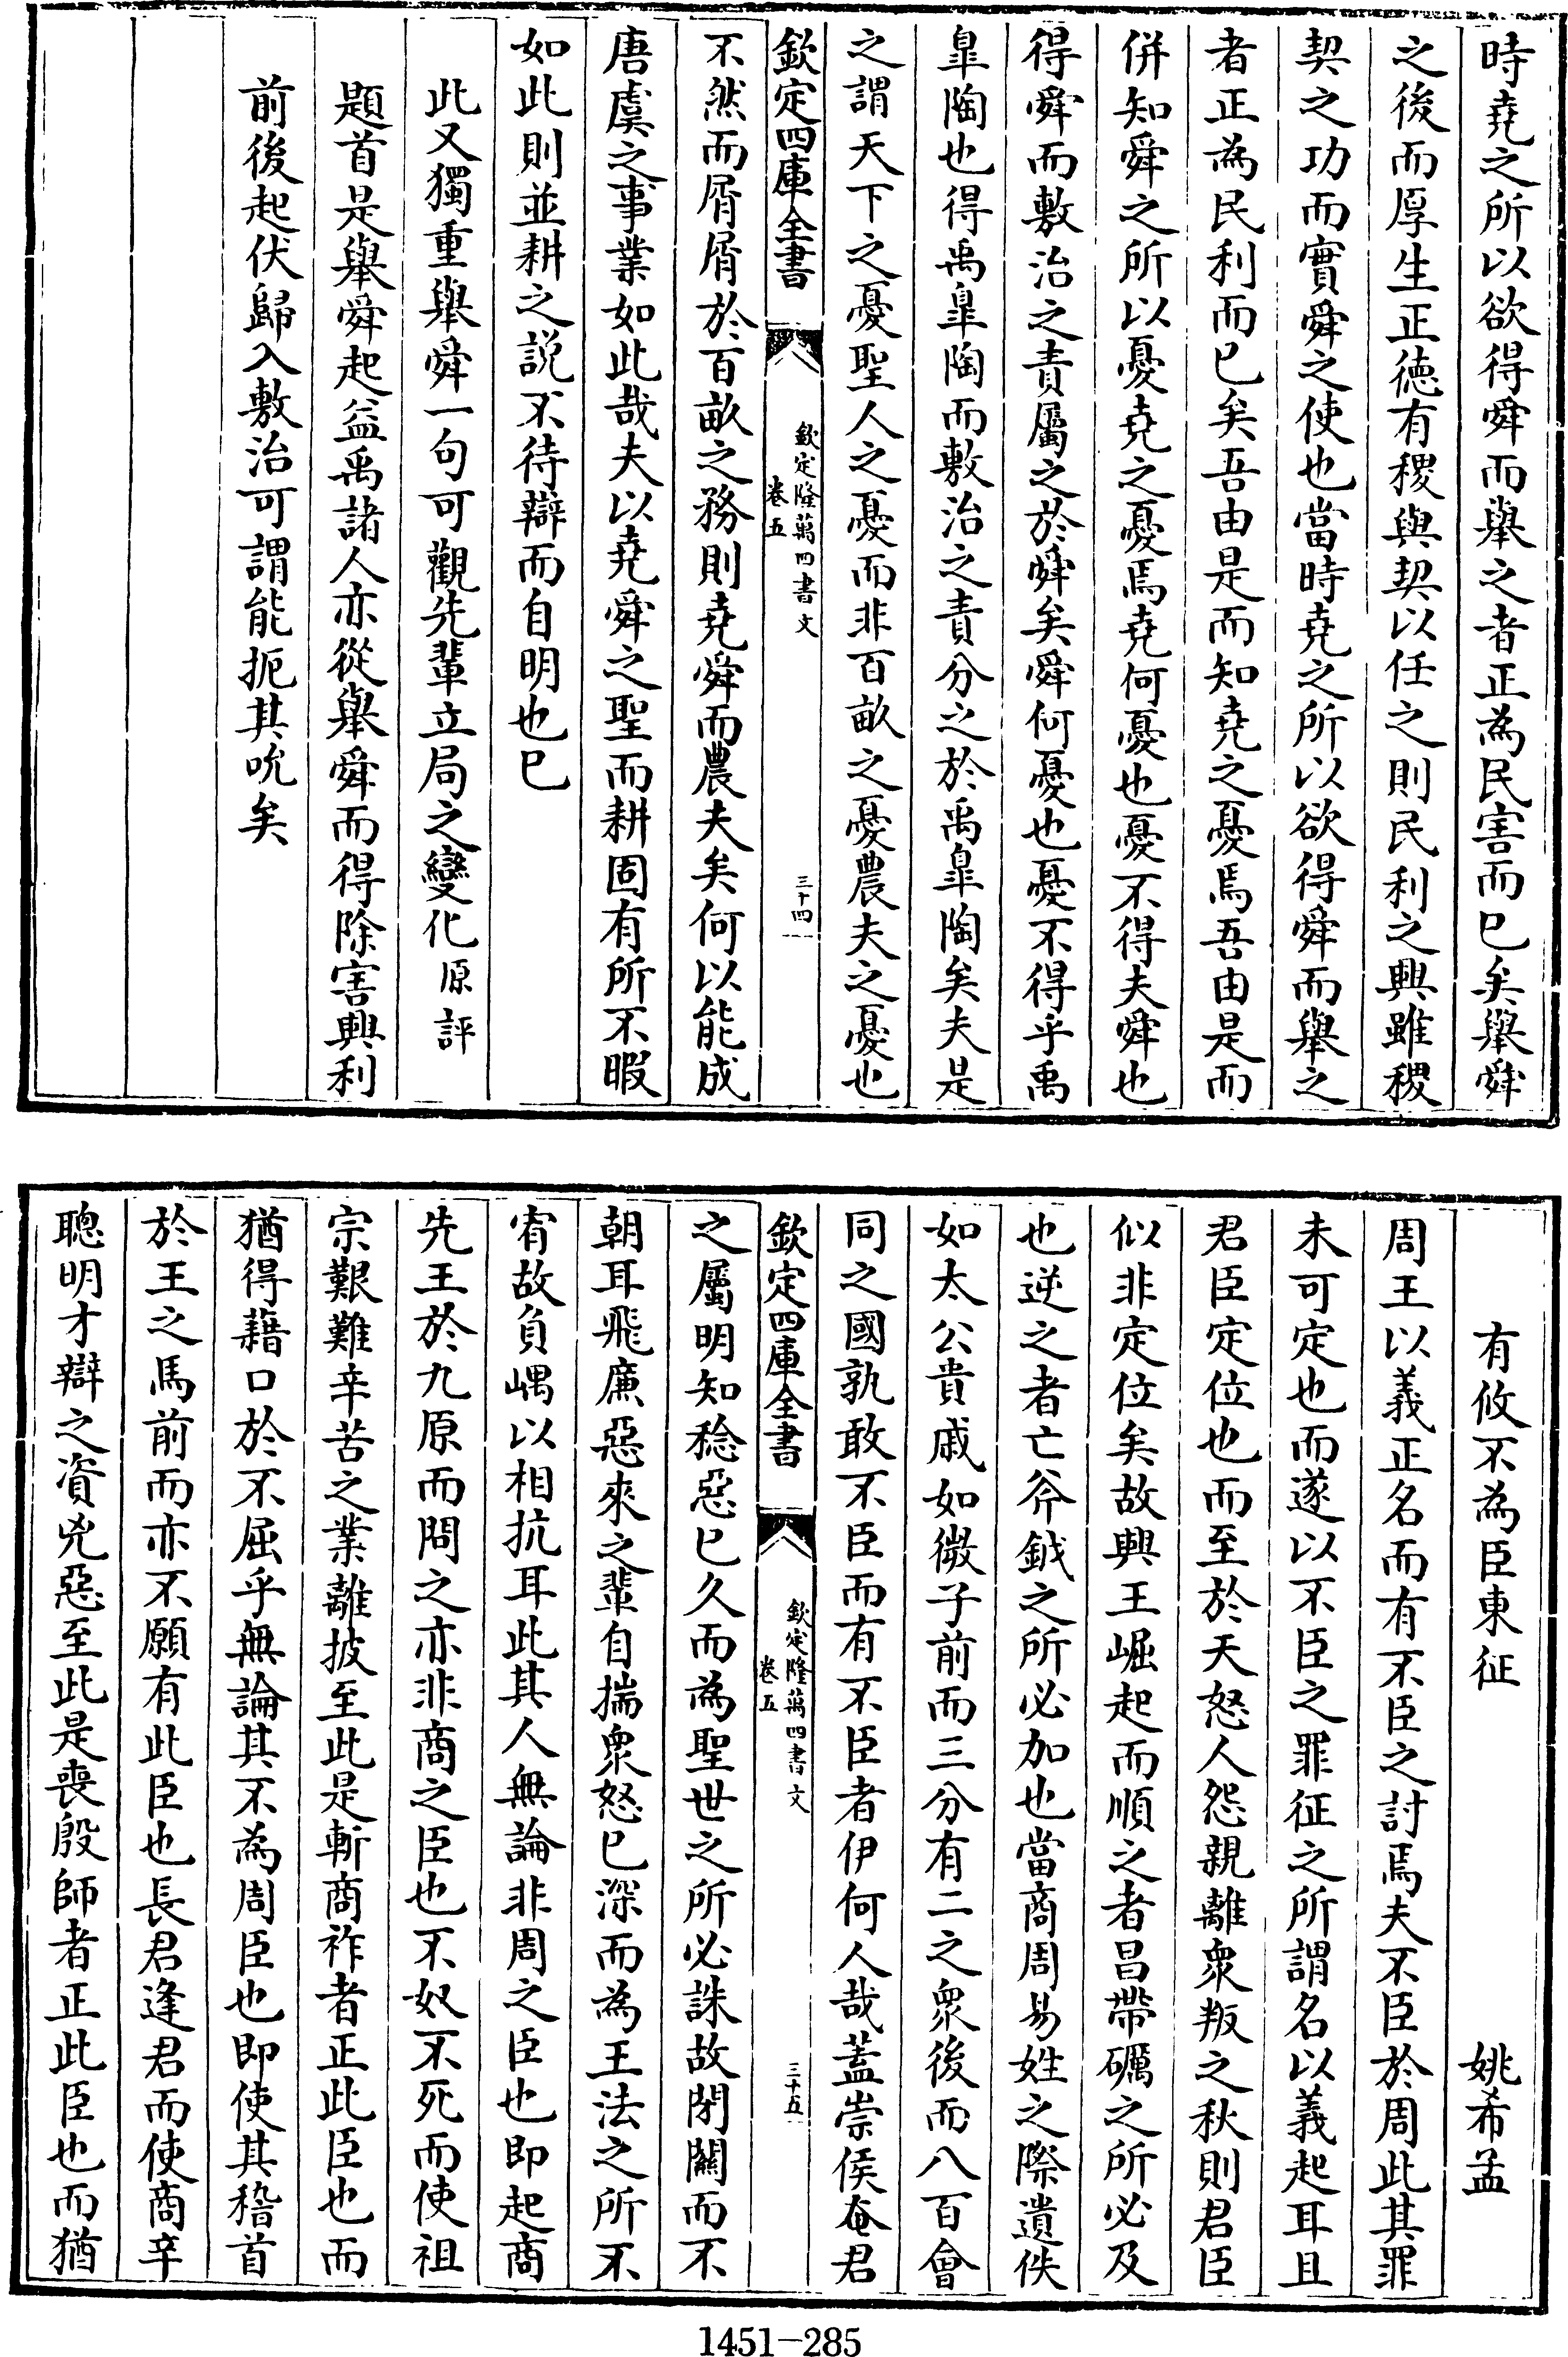 時堯之所以欲得舜而舉之者正為民害而已矣舉舜
之後而厚生正徳有稷與契以任之則民利之興雖稷
契之功而實舜之使也當時堯之所以欲得舜而舉之
者正為民利而已矣吾由是而知堯之憂焉吾由是而
併知舜之所以憂堯之憂焉堯何憂也憂不得夫舜也
得舜而敷治之責屬之於舜矣舜何憂也憂不得乎禹
臯陶也得禹臯陶而敷治之責分之於禹臯陶矣夫是
之謂天下之憂聖人之憂而非百畝之憂農夫之憂也
欽定四庫全書
欽定隆萬四書文
卷五
三十四
不然而屑屑於百畝之務則堯舜而農夫矣何以能成
唐虞之事業如此哉夫以堯舜之聖而耕固有所不暇
如此則並耕之説不待辯而自明也已
此又獨重舉舜一句可觀先輩立局之變化原評
題首是舉舜起益禹諸人亦從舉舜而得除害興利
前後起伏歸入敷治可謂能扼其吭矣
有攸不為臣東征 姚希孟
周王以義正名而有不臣之討焉夫不臣於周此其罪
未可定也而遂以不臣之罪征之所謂名以義起耳且
君臣定位也而至於天怒人怨親離衆叛之秋則君臣
似非定位矣故興王崛起而順之者昌帶礪之所必及
也逆之者亡斧鉞之所必加也當商周易姓之際遺佚
如太公貴戚如微子前而三分有二之衆後而八百會
同之國孰敢不臣而有不臣者伊何人哉蓋崇侯奄君
欽定四庫全書
欽定隆萬四書文
卷五
三十五
之屬明知稔惡已久而為聖世之所必誅故閉關而不
朝耳飛廉惡來之輩自揣衆怒已深而為王法之所不
宥故負嵎以相抗耳此其人無論非周之臣也即起商
先王於九原而問之亦非商之臣也不奴不死而使祖
宗艱難辛苦之業離披至此是斬商祚者正此臣也而
猶得藉口於不屈乎無論其不為周臣也即使其稽首
於王之馬前而亦不願有此臣也長君逢君而使商辛
聰明才辯之資兇惡至此是喪殷師者正此臣也而猶
1451-285